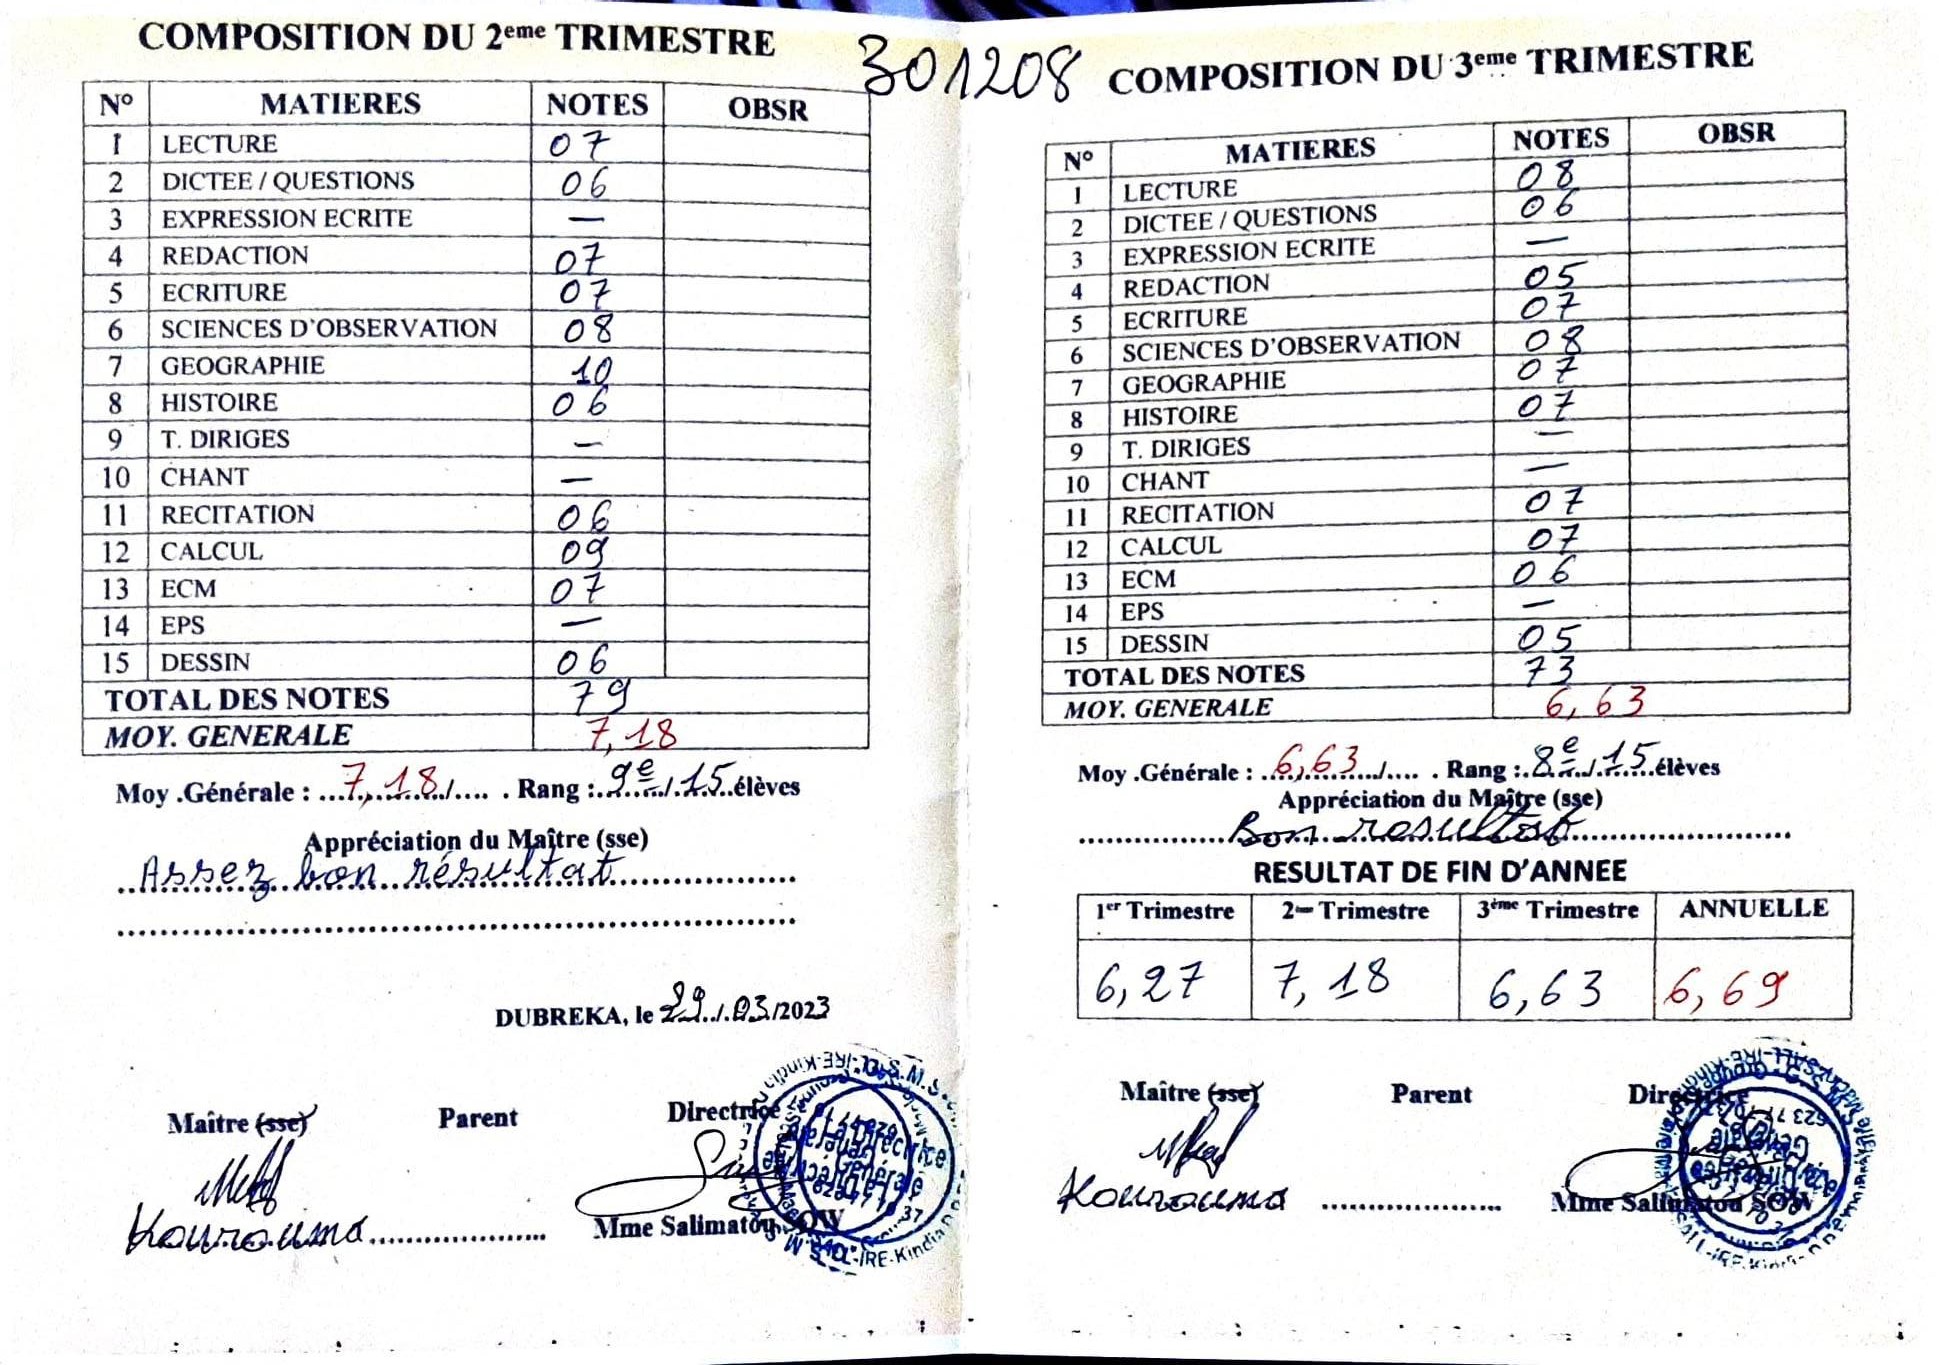 COMPOSITION DU 2eme TRIMESTRE
N° MATIERES NOTES OBSR
1 LECTURE 07
2 DICTEE / QUESTIONS 06
3 EXPRESSION ECRITE —
4 REDACTION 07
5 ECRITURE 07
6 SCIENCES D'OBSERVATION 08
7 GEOGRAPHIE 10
8 HISTOIRE 06
9 T. DIRIGES —
10 CHANT —
11 RECITATION 06
12 CALCUL 09
13 ECM 07
14 EPS —
15 DESSIN 06
TOTAL DES NOTES 79
MOY. GENERALE 7,18
Moy .Générale : ...7,18./.... . Rang :.9e../.15.élèves
Appréciation du Maître (sse)
Assez bon résultat
DUBREKA, le 29/03/2023
Maître (sse) Parent Directrice
Kourouma
Mme Salimatou SOW
301208
COMPOSITION DU 3eme TRIMESTRE
N° MATIERES NOTES OBSR
1 LECTURE 08
2 DICTEE / QUESTIONS 06
3 EXPRESSION ECRITE —
4 REDACTION 05
5 ECRITURE 07
6 SCIENCES D'OBSERVATION 08
7 GEOGRAPHIE 07
8 HISTOIRE 07
9 T. DIRIGES —
10 CHANT —
11 RECITATION 07
12 CALCUL 07
13 ECM 06
14 EPS —
15 DESSIN 05
TOTAL DES NOTES 73
MOY. GENERALE 6,63
Moy .Générale : ..6,63.../.... . Rang :.8e../.15.élèves
Appréciation du Maître (sse)
Bon resultat
RESULTAT DE FIN D'ANNEE
1er Trimestre 2eme Trimestre 3ème Trimestre ANNUELLE
6,27 7,18 6,63 6,69
Maître (sse) Parent Directrice
Kourouma
Mme Salimatou SOW